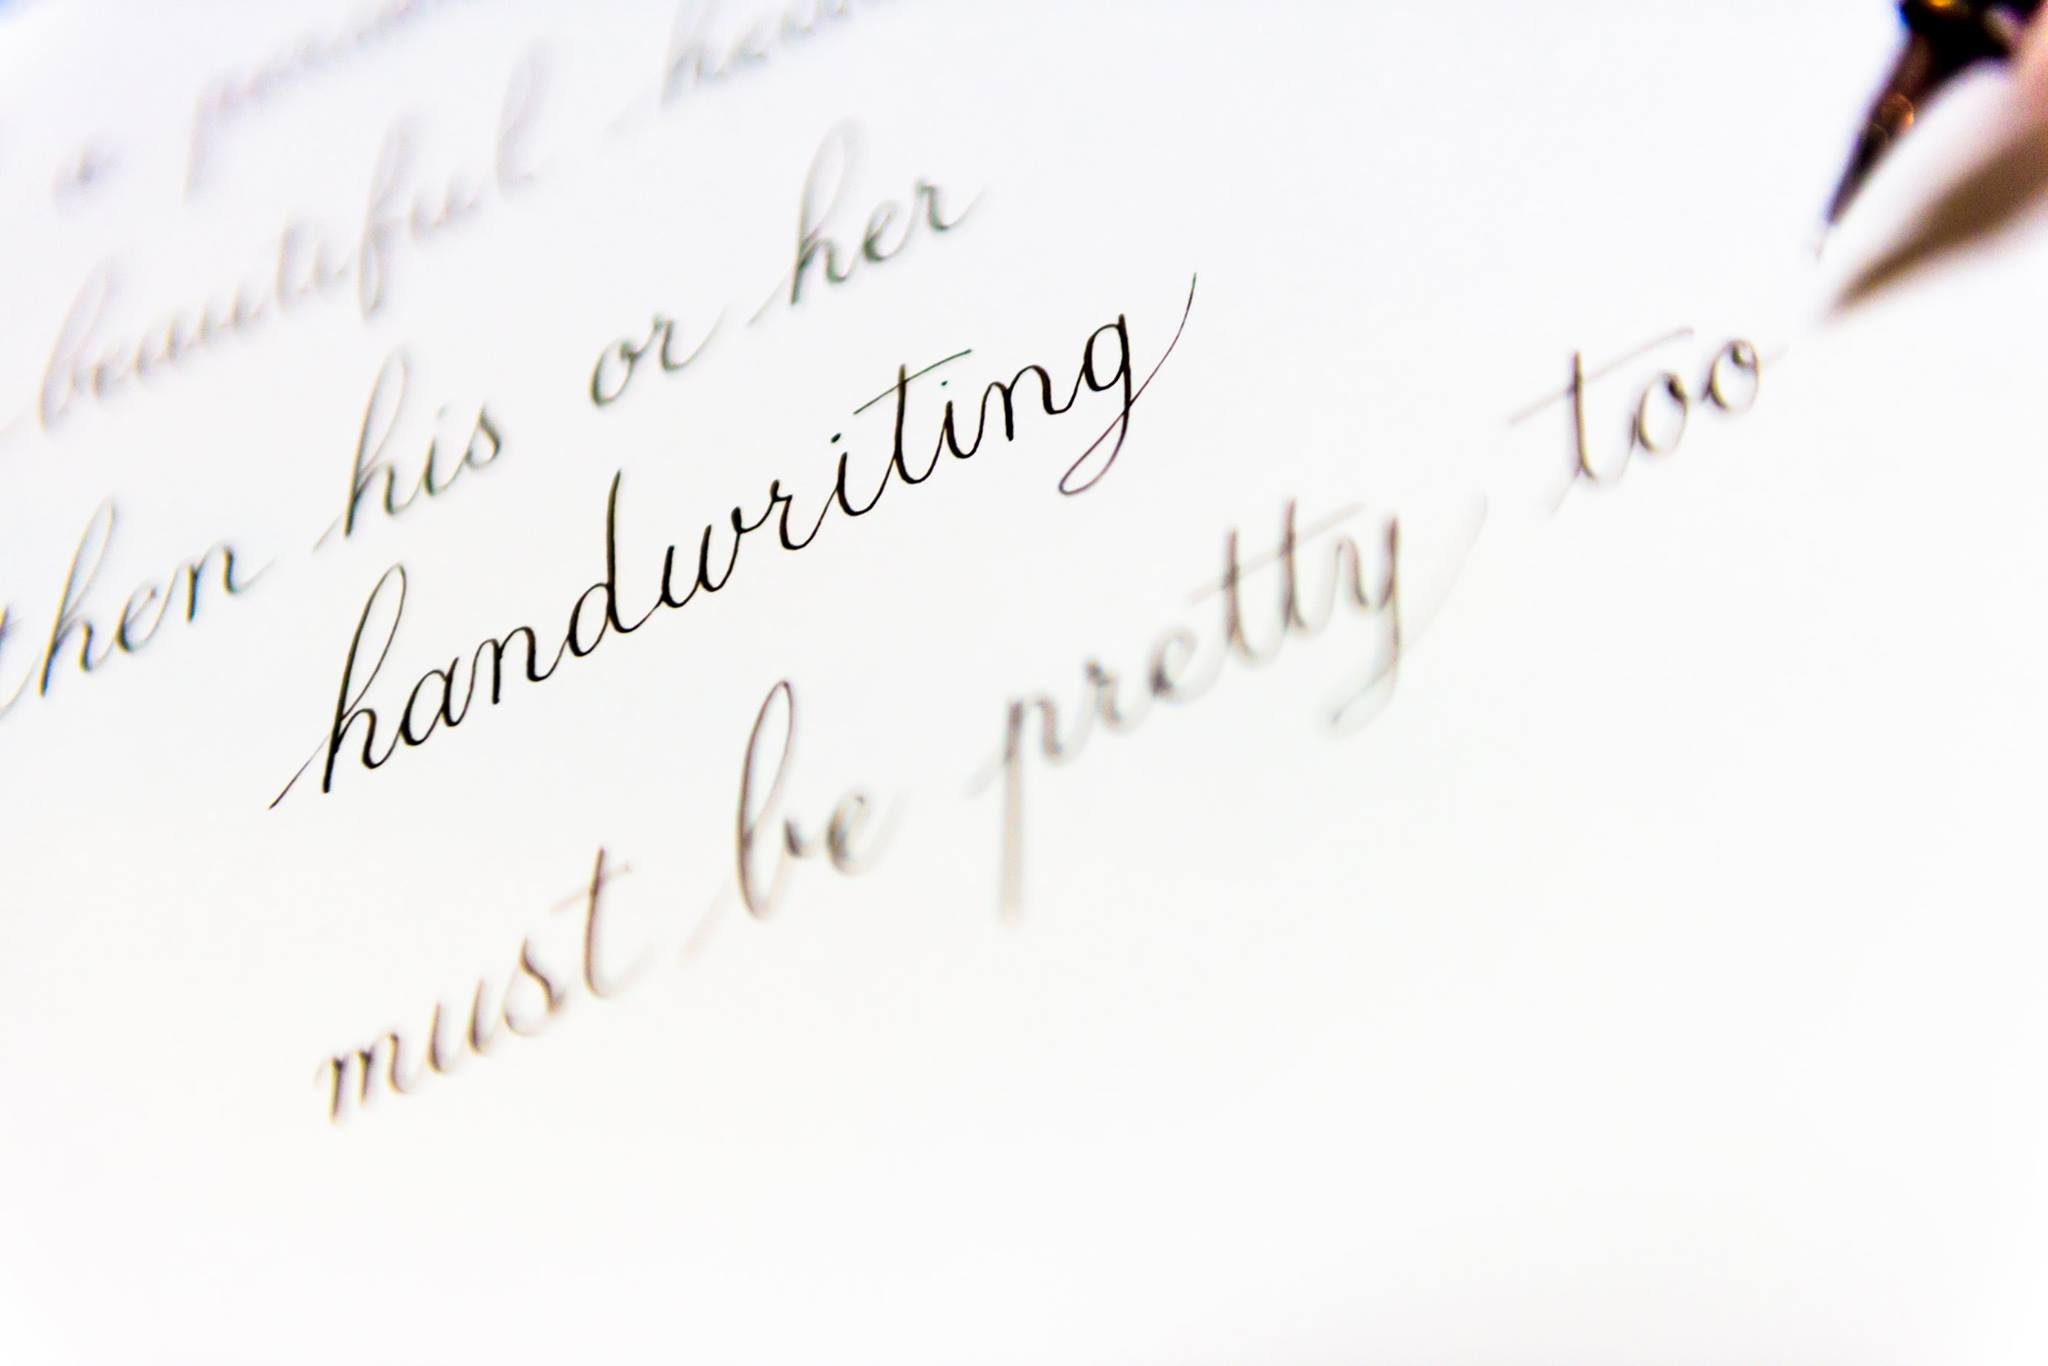 a
beautiful
then his or her
handwriting
must be pretty too